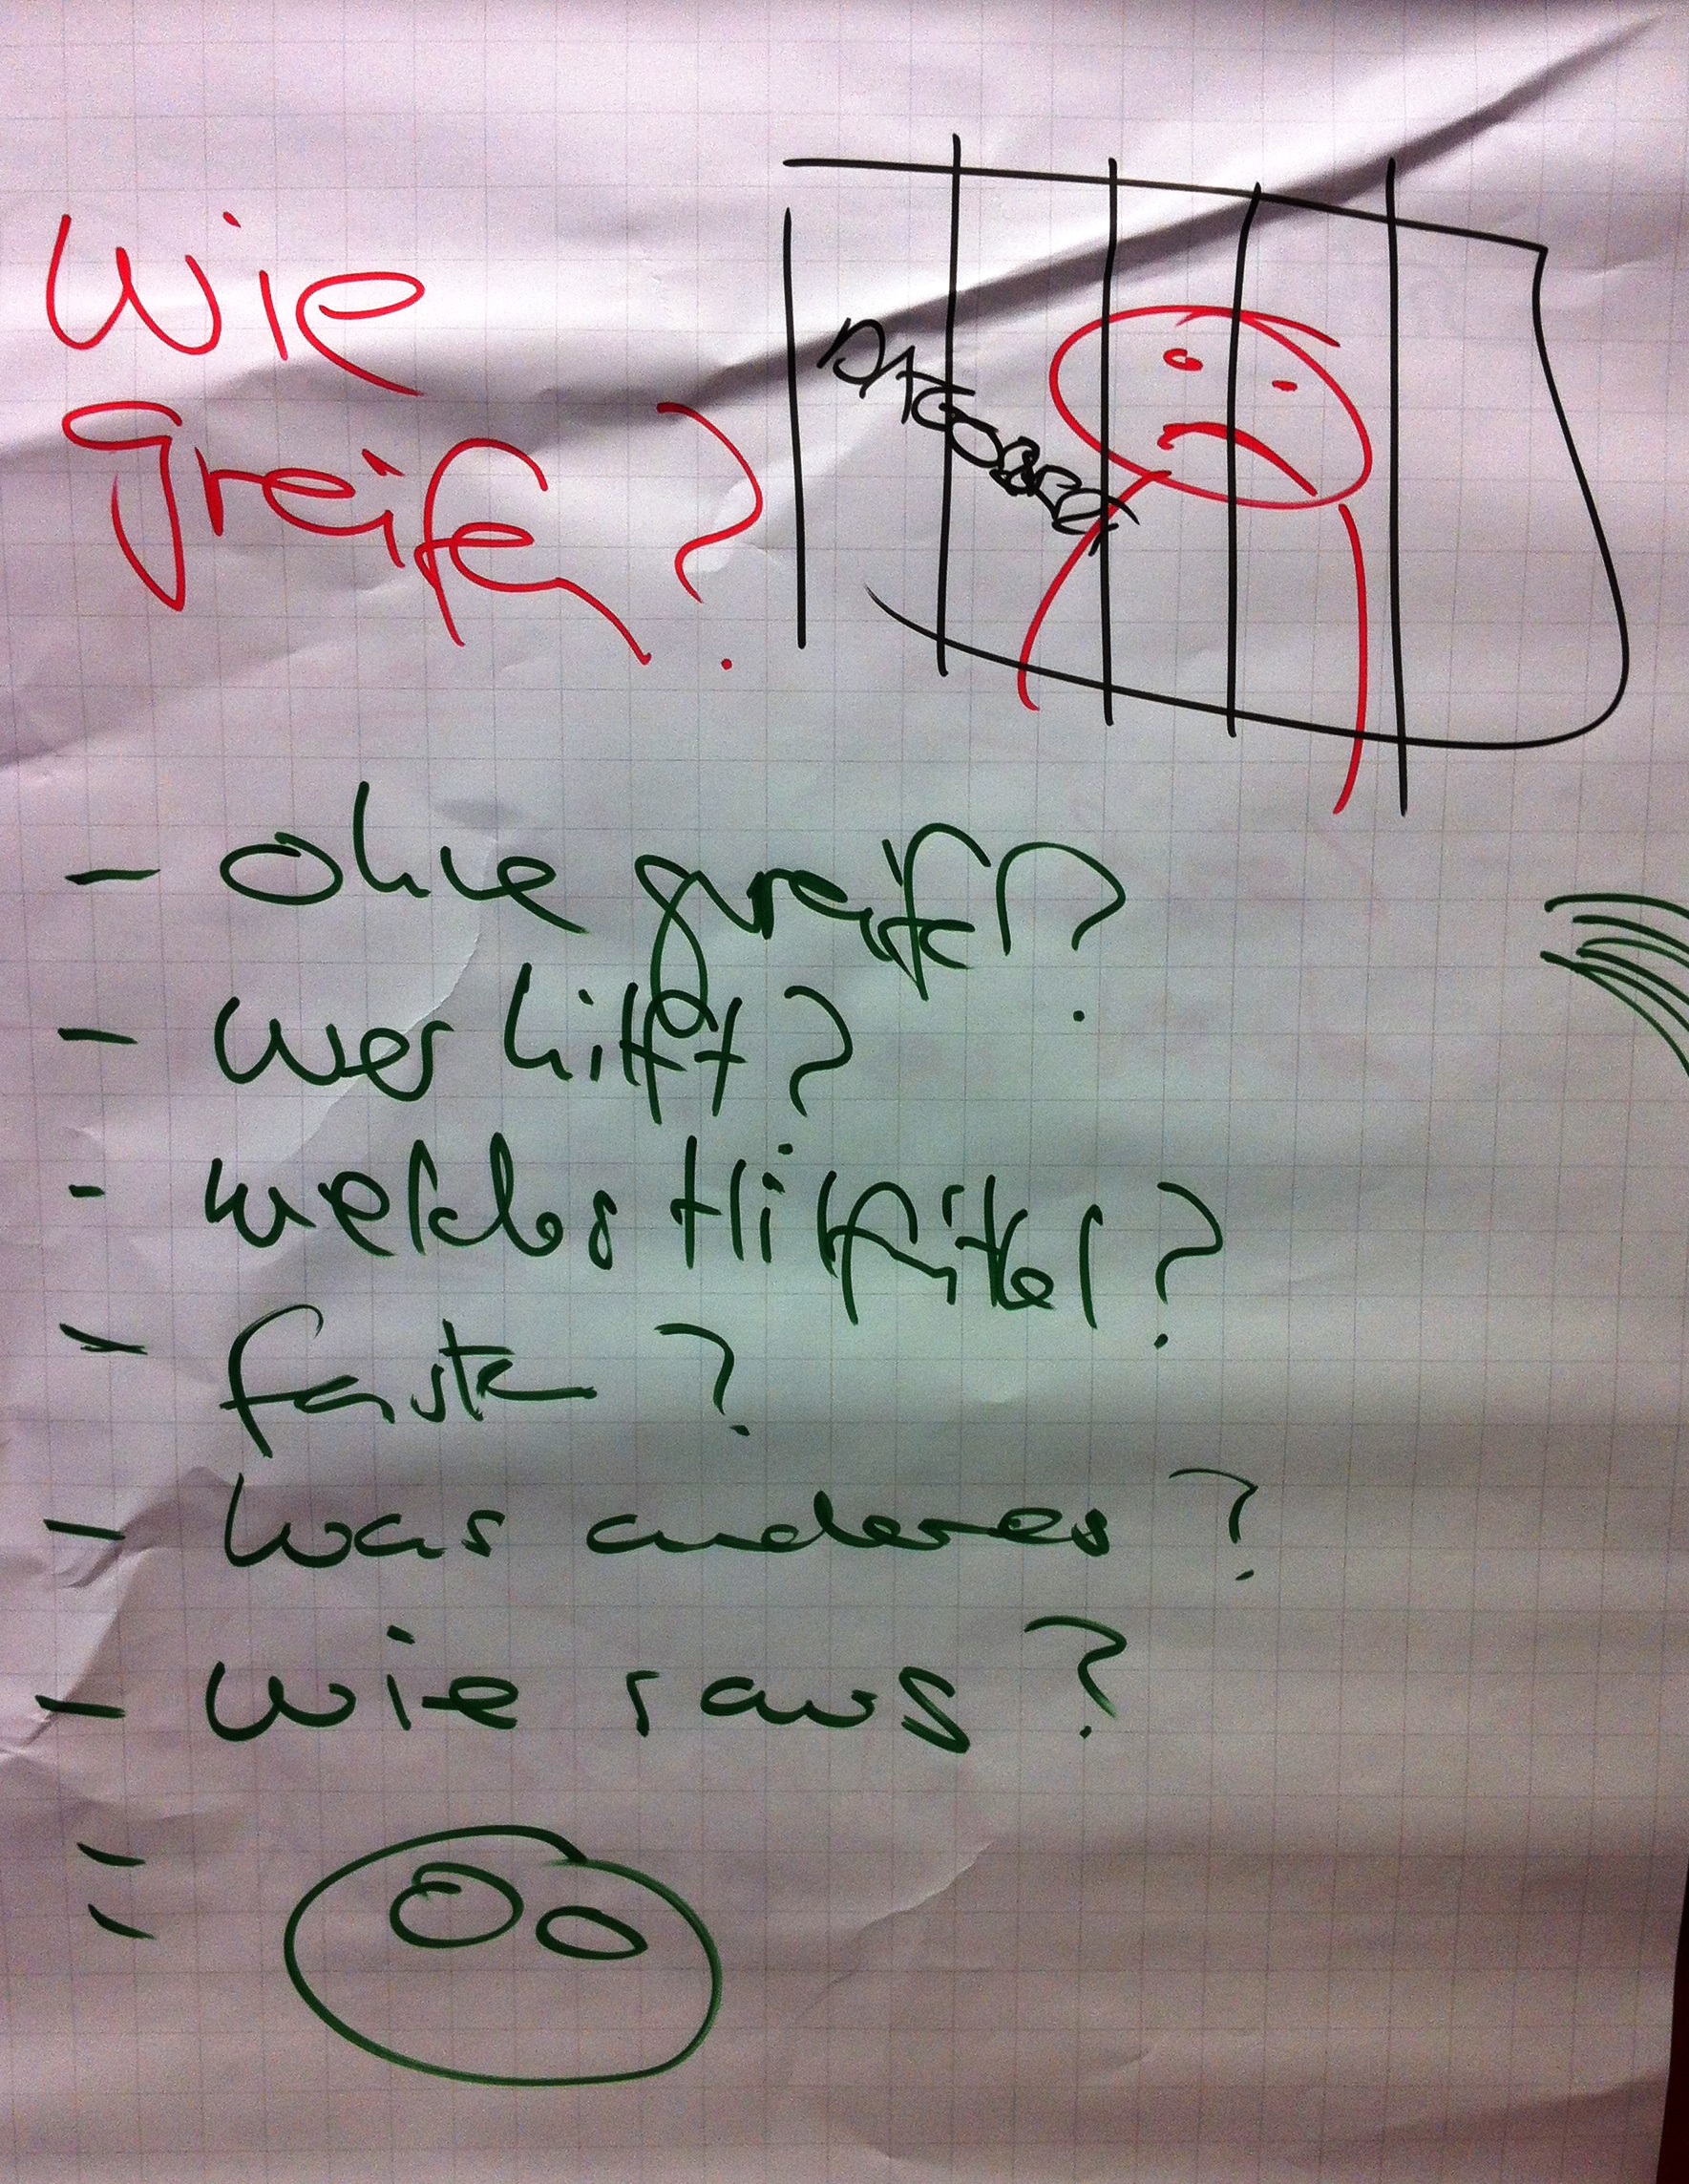 Wie
greifen?
DAGOBERT
- ohne greifen?
- wer hilft?
- welches Hilfsmittel?
- feste?
- was anderes?
- wie raus?
-
-